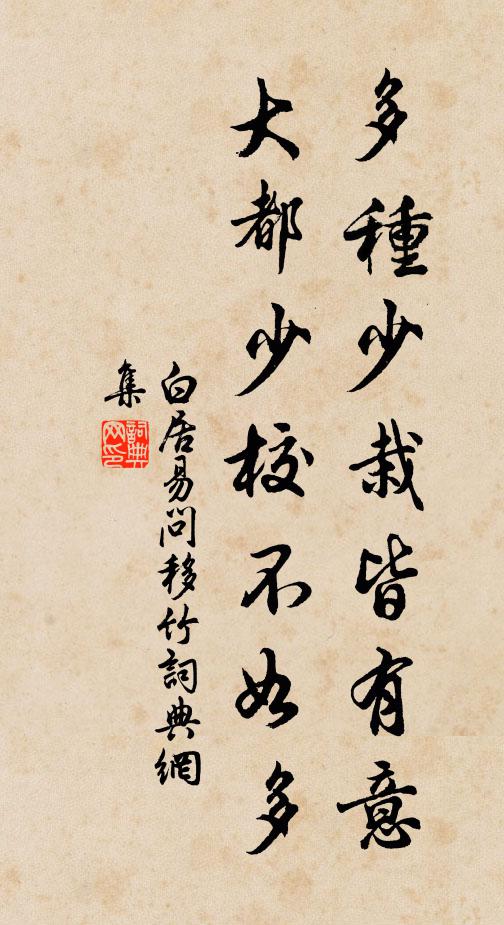 多種少栽皆有意
大都少校不如多
白居易問移竹詞典網
集
詞典
网印